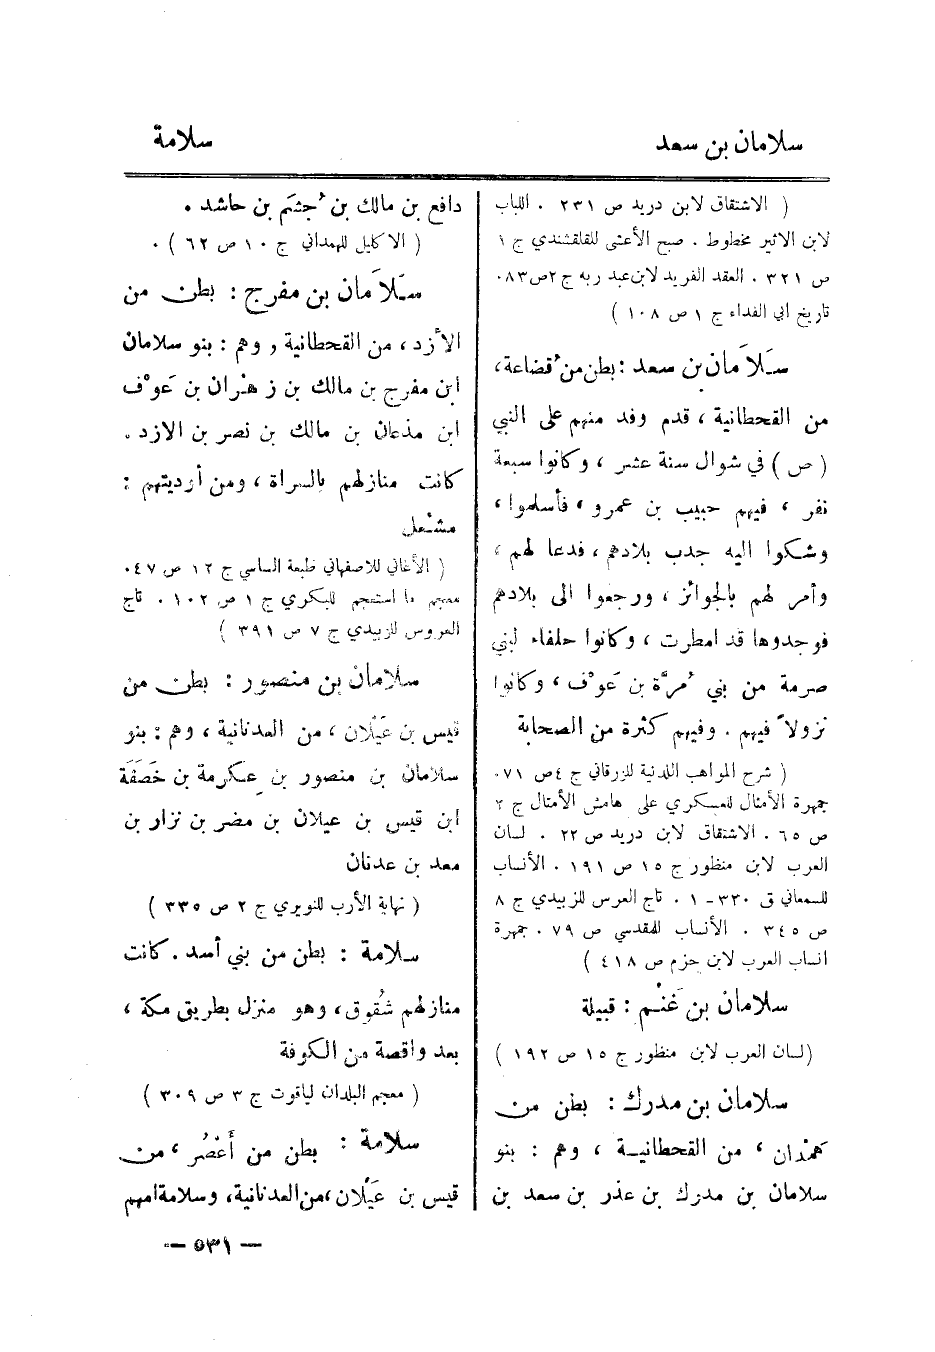 سلامان بن سعد
سلامة
( الاشتقاق لابن دريد ص ٢٣١ . اللباب
لابن الاثير مخطوط . صبح الأعشى للقلقشندي ج ١
ص ٣٢١ . العقد الفريد لابن عبد ربه ج ٢ ص ٨٣.
تاريخ ابي الفداء ج ١ ص ١٠٨ )
سَلاَمان بن سعد : بطن من ُقضاعة ،
من القحطانية ، قدم وفد منهم على النبي
( ص ) في شوال سنة عشر ، وكانوا سبعة
نفر ، فيهم حبيب بن عمرو ، فأسلموا ،
وشكوا اليه جدب بلادهم ، فدعا لهم ،
وأمر لهم بالجوائز ، ورجعوا الى بلادهم
فوجدوها قد امطرت ، وكانوا حلفاء لبني
صرمة من بني ُمرَّة بن عَوْف ، وكانوا
نزولاً فيهم . وفيهم كثرة من الصحابة
( شرح المواهب اللدنية للزرقاني ج ٤ ص ٧١.
جمهرة الأمثال للعسكري على هامش الأمثال ج ٢
ص ٦٥ . الاشتقاق لابن دريد ص ٢٢ . لسان
العرب لابن منظور ج ١٥ ص ١٩١ . الأنساب
للسمعاني ق ٣٣٠ - ١ . تاج العرس للزبيدي ج ٨
ص ٣٤٥ . الأنساب للمقدسي ص ٧٩ . جمهرة
انساب العرب لابن حزم ص ٤١٨ )
سلامان بن غَنْم : قبيلة
( لسان العرب لابن منظور ج ١٥ ص ١٩٢ )
سلامان بن مدرك : بطن من
َهمْدان ، من القحطانية ، وهم : بنو
سلامان بن مدرك بن عذر بن سعد بن
دافع بن مالك بن ُجشَم بن حاشد .
( الاكليل للهمداني ج ١٠ ص ٦٢ ) .
سَلاَمان بن مفرج : بطن من
الأزد ، من القحطانية ، وهم : بنو سلامان
ابن مفرج بن مالك بن زهْران بن عَوْف
ابن مذعان بن مالك بن نصر بن الازد .
كانت منازلهم بالسراة ، ومن أرديتهم :
مشْعل
( الأغاني للاصفهاني طبعة الساسي ج ١٢ ص ٤٧.
معجم ما استعجم للبكري ج ١ ص ١٠٢ . تاج
العروس للزبيدي ج ٧ ص ٣٩١ )
سلامان بن منصور : بطن من
قيس بن عَيْلان ، من العدنانية ، وهم : بنو
سلامان بن منصور بن عكرمة بن خَصَفَة
ابن قيس بن عيلان بن مضر بن نزار بن
معد بن عدنان
( نهاية الأرب للنويري ج ٢ ص ٣٣٥ )
سلامة : بطن من بني أسد . كانت
منازلهم شُقوق ، وهو منزل بطريق مكة ،
بعد واقصة من الكوفة
( معجم البلدان لياقوت ج ٣ ص ٣٠٩ )
سلامة : بطن من أَعْصُر ، من
قيس بن عَيْلان ، من العدنانية ، وسلامة امهم
— ٥٣١ —